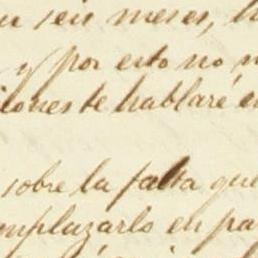 seis meses,
y por esto no
iones te hablaré en
sobre la falta que
mplazarlo en pa